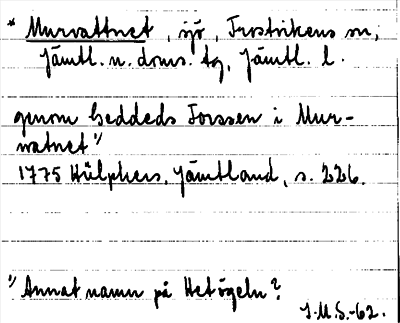 * Murvattnet, sjö, Frostvikens sn,
Jämtl. n. doms. tg, Jämtl. l.
genom Geddeds Forssen i Mur-
vatnet 1)
1775 Hülphers, Jämtland, s. 226.
1) Annat namn på Hetögeln?
J.M.S.-62.